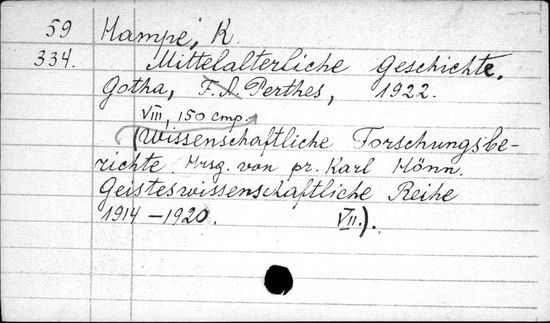 59 Hampe, K.
334. Mittelalterliche Geschichte.
Gotha, F. A. Perthes, 1922.
VIII, 150 стр.
(Wissenschaftliche Forschungsbe-
richte. Hrsg. von pr. Karl Hönn.
Geisteswissenschaftliche Reihe
1914–1920. VII.).